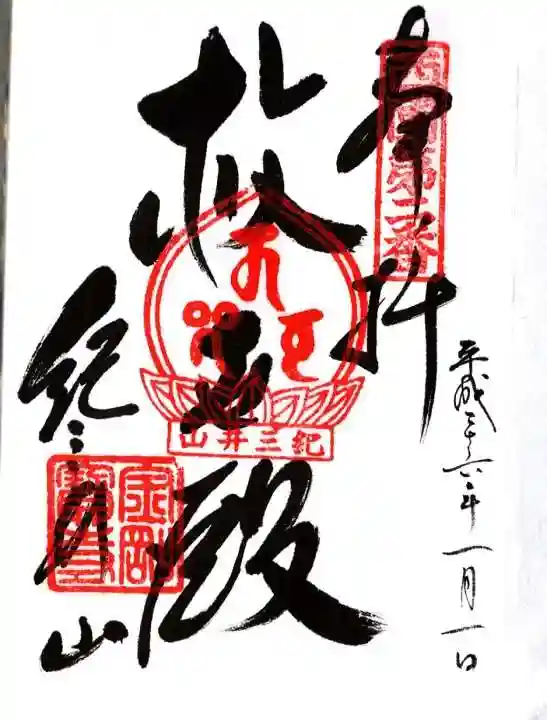 西国第二番
奉拝
平成二十六年一月一日
救世殿
紀三井山
紀三井山
金剛寶寺